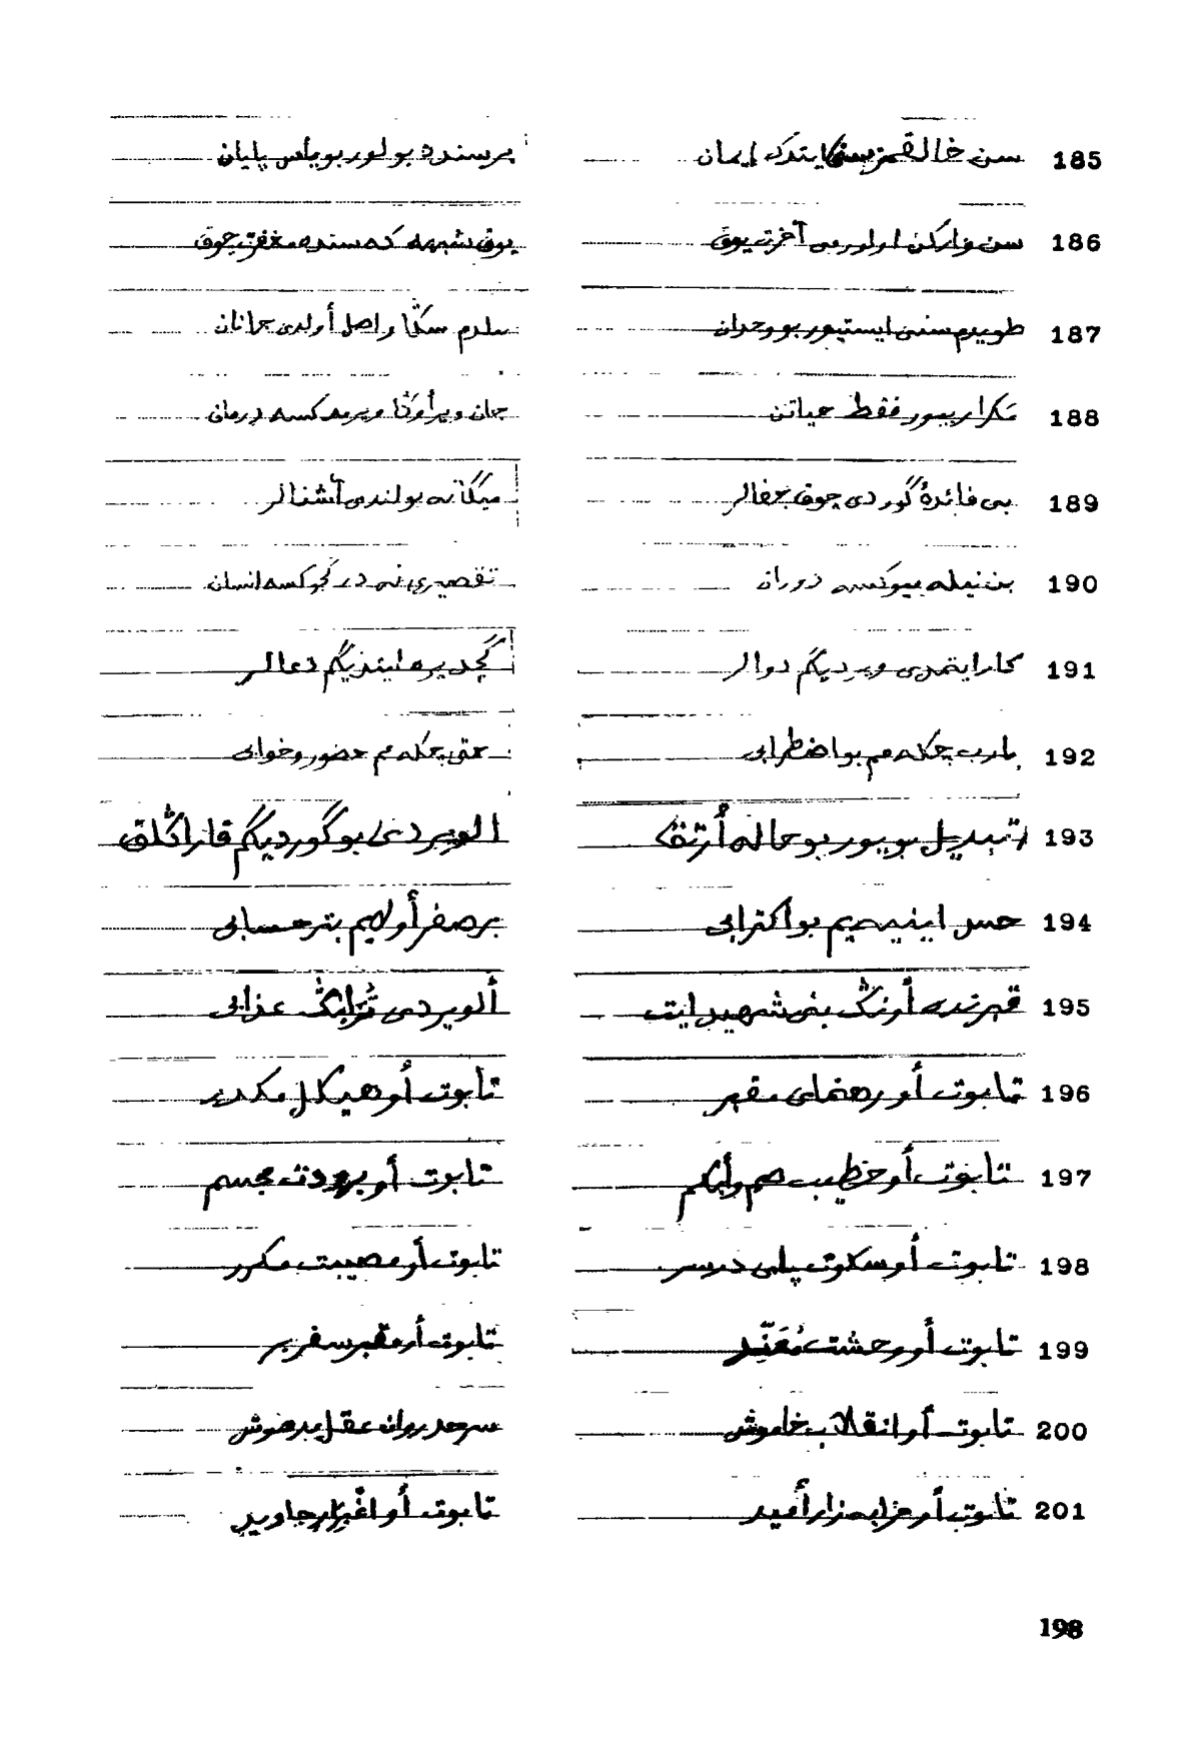 185 سن خالقمز سڭا ایتدك ایمان برسنده بولور بو یأس پایان
186 سن وارکن اولورمی آخرت یوق یوق شبهه که سنده مغفرت چوق
187 طویدم سنی ایستیور بو وجدان بیلدم سڭا واصل أولدی جانان
188 تکرار یبور فقط حیاتن جان ویر أوڭا ویرمدکسه درمان
189 بی فائده گوردی چوق جفالر بیگانه بولندی آشنالر
190 بن نیله ییم دوران تقصیری نه در کسه انسان
191 کار ایتمدی ویردیگم دوالر گچدیره ایتدیگم دعالر
192 یارب چکه مم بو اضطرابی حتی چکه مم حضور و خوابی
193 تبدیل بو حاله أرتق الویردی بو گوردیگم قاراڭلق
194 حس ایتمیه یم بو اکترابی بر صفر أولیم بتر حسابی
195 قبرنده أونڭ بنی شهید ایت ألویردی تُرابڭ عذابی
196 تابوت أو رهنمای مقبر تابوت أو هیکل مکدر
197 تابوت أو خطیب هم وأبکم تابوت أو برودت مجسم
198 تابوت أو سکوت یلی درسر تابوت أو مصیبت مکرر
199 تابوت أو وحشت مُعَنِّد تابوت أو مقبر سفربر
200 تابوت أو انقلاب خاموش سرحد روان عقل مدهوش
201 تابوت أو مزار أمید تابوت أو اغبرار جاوید
198